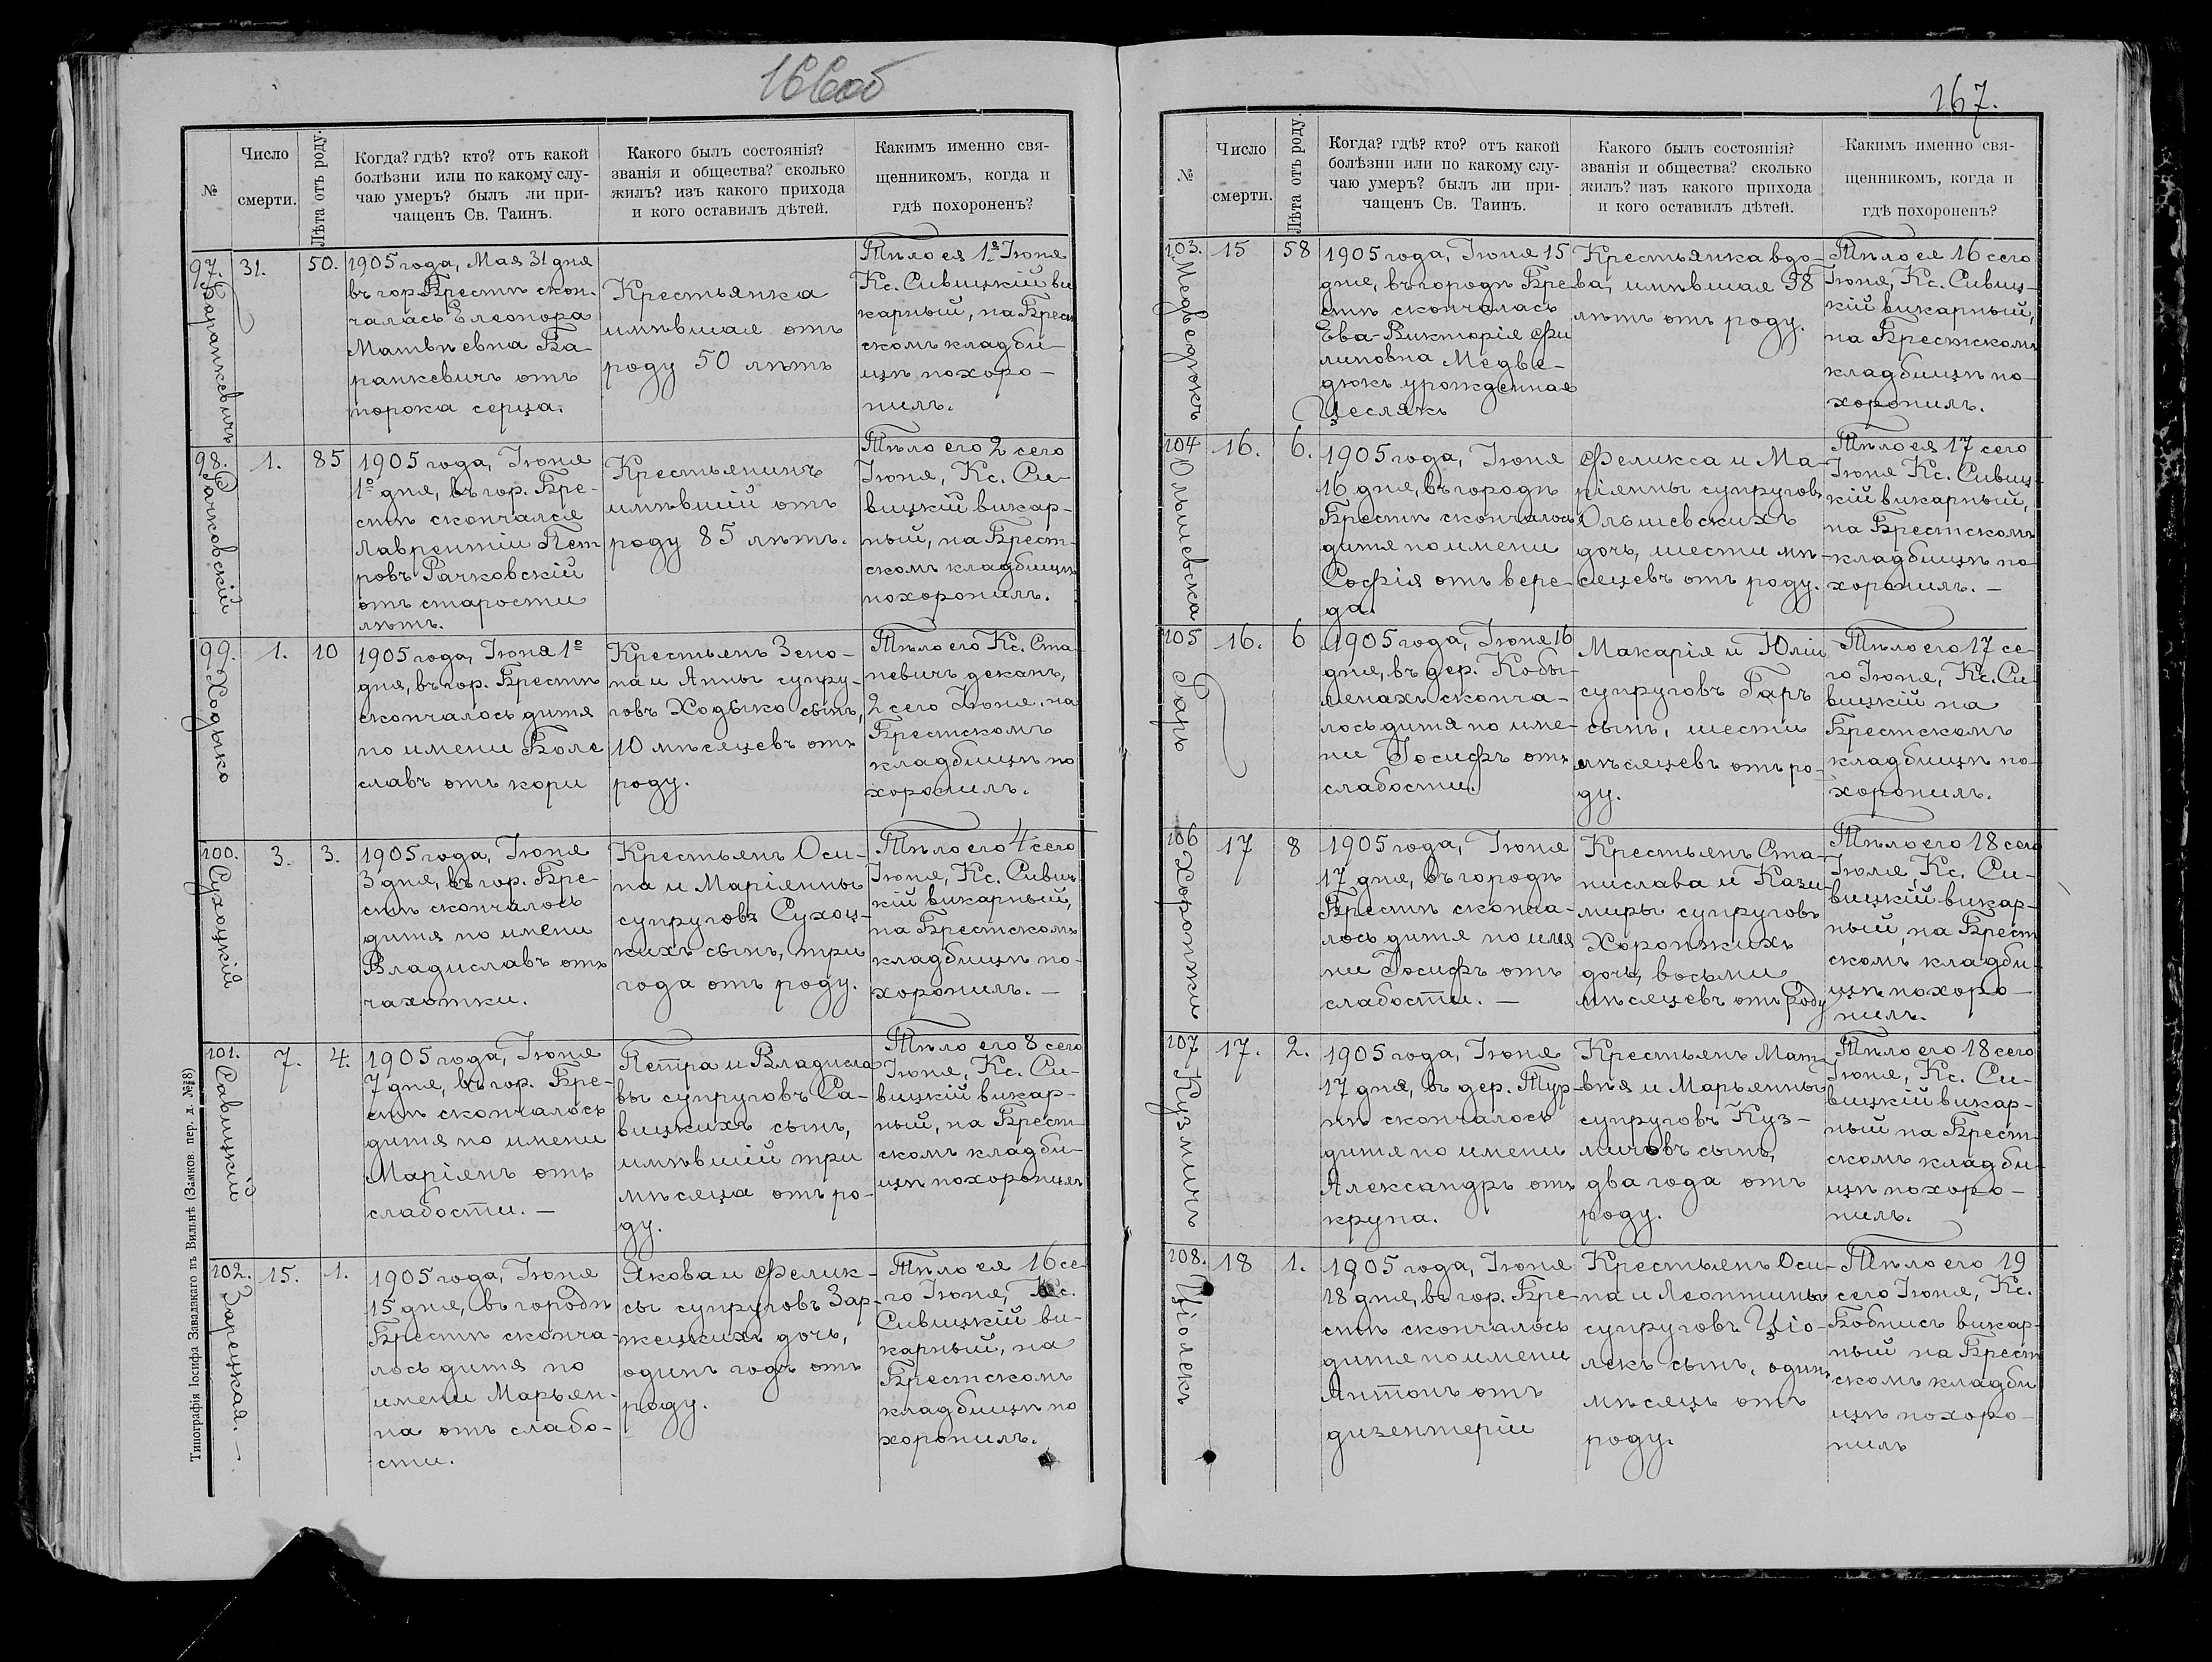 166 об
№
Число
смерти.
Лѣта отъ роду.
Когда? гдѣ? кто? отъ какой
болѣзни или по какому слу-
чаю умеръ? былъ ли при-
чащенъ Св. Таинъ.
Какого былъ состоянія?
званія и общества? сколько
жилъ? изъ какого прихода
и кого оставилъ дѣтей.
Какимъ именно свя-
щенникомъ, когда и
гдѣ похороненъ?
97.
Баранкевичъ
31.
50.
1905 года, Мая 31 дня
въ гор. Брестѣ скон-
чалась Елеонора
Матвѣевна Ба-
ранкевичъ отъ
порока серца.
Крестьянка
имѣвшая отъ
роду 50 лѣтъ
Тѣло ея 1го Іюня
Кс. Сивицкій ви
карный, на Брест
скомъ кладби-
щѣ похоро-
нилъ.
98.
Рачковскій
1.
85
1905 года, Іюня
1го дня, въ гор. Бре-
стѣ скончался
Лаврентій Пет
ровъ Рачковскій
отъ старости
лѣтъ.
Крестьянинъ
имѣвшій отъ
роду 85 лѣтъ.
Тѣло его 2 сего
Іюня, Кс. Си-
вицкій викар-
ный, на Брест-
скомъ кладбищѣ
похоронилъ.
99.
Ходыко
1.
10
1905 года, Іюня 1го
дня, въ гор. Брестѣ
скончалось дитя
по имени Боле
славъ отъ кори
Крестьянъ Зено-
на и Анны супру-
говъ Ходыко сынъ,
10 мѣсяцевъ отъ
роду.
Тѣло его Кс. Ста
невичъ деканъ,
2 сего Іюня, на
Брестскомъ
кладбищѣ по
хоронилъ.
100.
Сухоцкій
3.
3.
1905 года, Іюня
3 дня, въ гор. Бре-
стѣ скончалось
дитя по имени
Владиславъ отъ
чахотки.
Крестьянъ Оси-
па и Маріянны
супруговъ Сухоц-
кихъ сынъ, три
года отъ роду.
Тѣло его 4 сего
Іюня, Кс. Сивиц
кій викарный,
на Брестскомъ
кладбищѣ по-
хоронилъ. —
101.
Савицкій
7.
4.
1905 года, Іюня
7 дня, въ гор. Бре-
стѣ скончалось
дитя по имени
Маріянъ отъ
слабости. —
Петра и Владисла
вы супруговъ Са-
вицкихъ сынъ,
имѣвшій три
мѣсяца отъ ро-
ду.
Тѣло его 8 сего
Іюня, Кс. Си-
вицкій викар-
ный, на Брест-
скомъ кладби-
щѣ похоронилъ
102.
Зарецкая. —
15.
1.
1905 года, Іюня
15 дня, въ городѣ
Брестѣ сконча-
лось дитя по
имени Марьян-
на отъ слабо-
сти.
Якова и Фелик-
сы супруговъ Зар-
жецкихъ дочь,
одинъ годъ отъ
роду.
Тѣло ея 16 се-
го Іюня, Кс.
Сивицкій ви-
карный, на
Брестскомъ
кладбищѣ по
хоронилъ.
Типографія Іосифа Завадзкаго въ Вильнѣ (Замков. пер. д. № 8)
167.
№
Число
смерти.
Лѣта отъ роду.
Когда? гдѣ? кто? отъ какой
болѣзни или по какому слу-
чаю умеръ? былъ ли при-
чащенъ Св. Таинъ.
Какого былъ состоянія?
званія и общества? сколько
жилъ? изъ какого прихода
и кого оставилъ дѣтей.
Какимъ именно свя-
щенникомъ, когда и
гдѣ похороненъ?
103.
Медведюкъ
15
58
1905 года, Іюня 15
дня, въ городѣ Бре-
стѣ скончалась
Ева-Викторія Фи
липовна Медве-
дюкъ урожденная
Цеслякъ
Крестьянка вдо-
ва, имѣвшая 58
лѣтъ отъ роду.
Тѣло ея 16 сего
Іюня, Кс. Сивиц-
кій викарный,
на Брестскомъ
кладбищѣ по-
хоронилъ.
104
Ольшевска
16.
6.
1905 года, Іюня
16 дня, въ городѣ
Брестѣ скончалось
дитя по имени
Софія отъ вере-
да.
Феликса и Ма-
ріянны супруговъ
Ольшевскихъ
дочь, шести мѣ-
сяцевъ отъ роду.
Тѣло ея 17 сего
Іюня Кс. Сивиц-
кій викарный,
на Брестскомъ
кладбищѣ по
хоронилъ. —
105
Гаръ
16.
6
1905 года, Іюня 16
дня, въ дер. Кобы-
лянахъ сконча-
лось дитя по име-
ни Іосифъ отъ
слабости.
Макарія и Юліи
супруговъ Гаръ
сынъ, шести
мѣсяцевъ отъ ро-
ду.
Тѣло его 17 се
го Іюня, Кс. Си-
вицкій на
Брестскомъ
кладбищѣ по-
хоронилъ.
106
Хоронжки
17
8
1905 года, Іюня
17 дня, въ городѣ
Брестѣ сконча-
лось дитя по имя
ни Іосифъ отъ
слабости. —
Крестьянъ Ста-
нислава и Кази-
миры супруговъ
Хоронжихъ
дочь, восьми
мѣсяцевъ отъ роду
Тѣло его 18 сего
Іюля, Кс. Си-
вицкій викар-
ный, на Брест
скомъ кладби-
щѣ похоро-
нилъ.
107
Кузмичъ
17.
2.
1905 года, Іюня
17 дня, въ дер. Тур-
нѣ скончалось
дитя по имени
Александръ отъ
крупа.
Крестьянъ Мат-
вѣя и Марьянны
супруговъ Куз-
мичовъ сынъ,
два года отъ
роду.
Тѣло его 18 сего
Іюня, Кс. Си-
вицкій викар-
ный на Брест-
скомъ кладби-
щѣ похоро-
нилъ.
108.
Ціолекъ
18
1.
1905 года, Іюня
18 дня, въ гор. Бре-
стѣ скончалось
дитя по имени
Антонъ отъ
дизентеріи
Крестьянъ Оси-
па и Леонтины
супруговъ Ціо-
лекъ сынъ, одинъ
мѣсяцъ отъ
роду.
Тѣло его 19
сего Іюня, Кс.
Бобнисъ викар-
ный на Брест
скомъ кладби
щѣ похоро-
нилъ